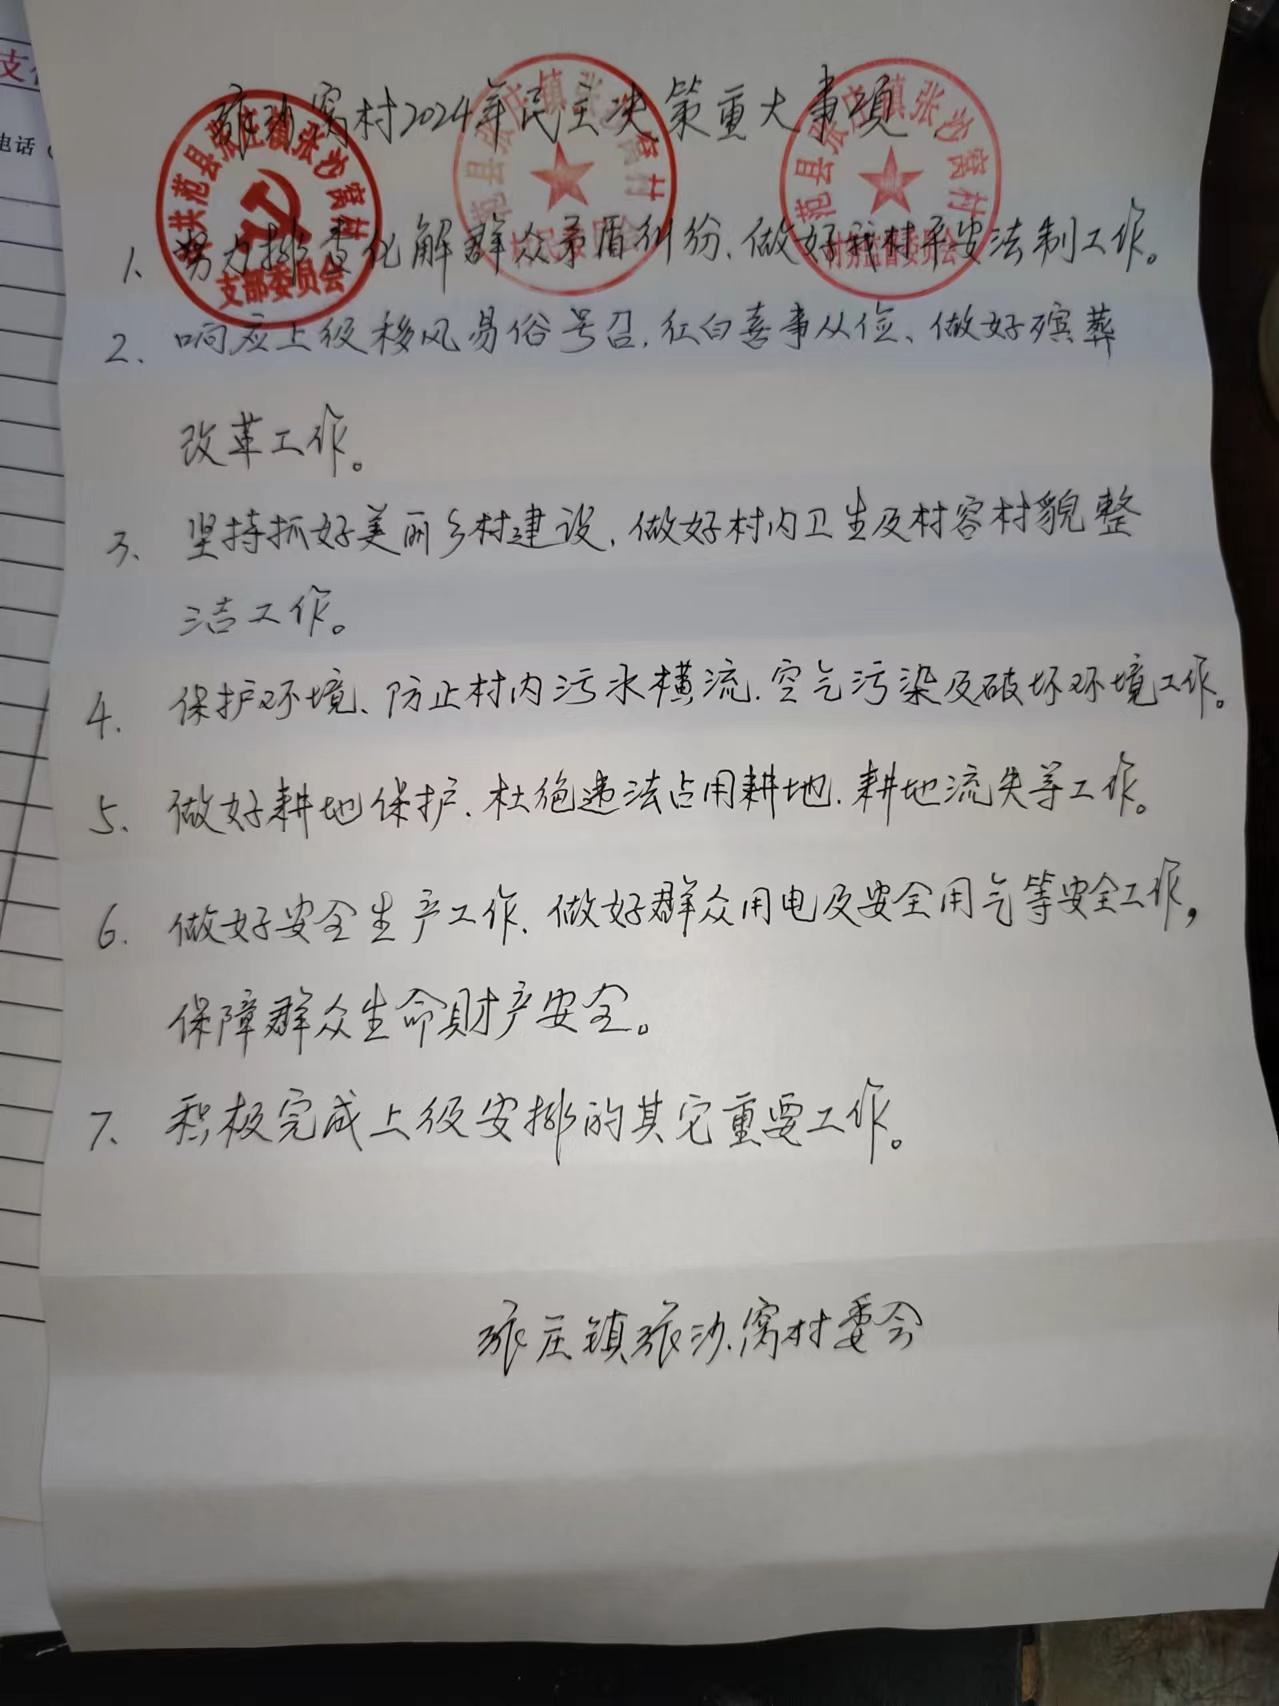 支
电话
张沙窝村2024年民主决策重大事项
中共范县张庄镇张沙窝村
支部委员会
范县张庄镇张沙窝村
村民委员会
范县张庄镇张沙窝村
村务监督委员会
1、努力排查化解群众矛盾纠纷、做好我村平安法制工作。
2、响应上级移风易俗号召,红白喜事从俭、做好殡葬
改革工作。
3、坚持抓好美丽乡村建设,做好村内卫生及村容村貌整
洁工作。
4、保护环境、防止村内污水横流.空气污染及破坏环境工作。
5、做好耕地保护、杜绝违法占用耕地.耕地流失等工作。
6、做好安全生产工作、做好群众用电及安全用气等安全工作,
保障群众生命财产安全。
7、积极完成上级安排的其它重要工作。
张庄镇张沙窝村委会